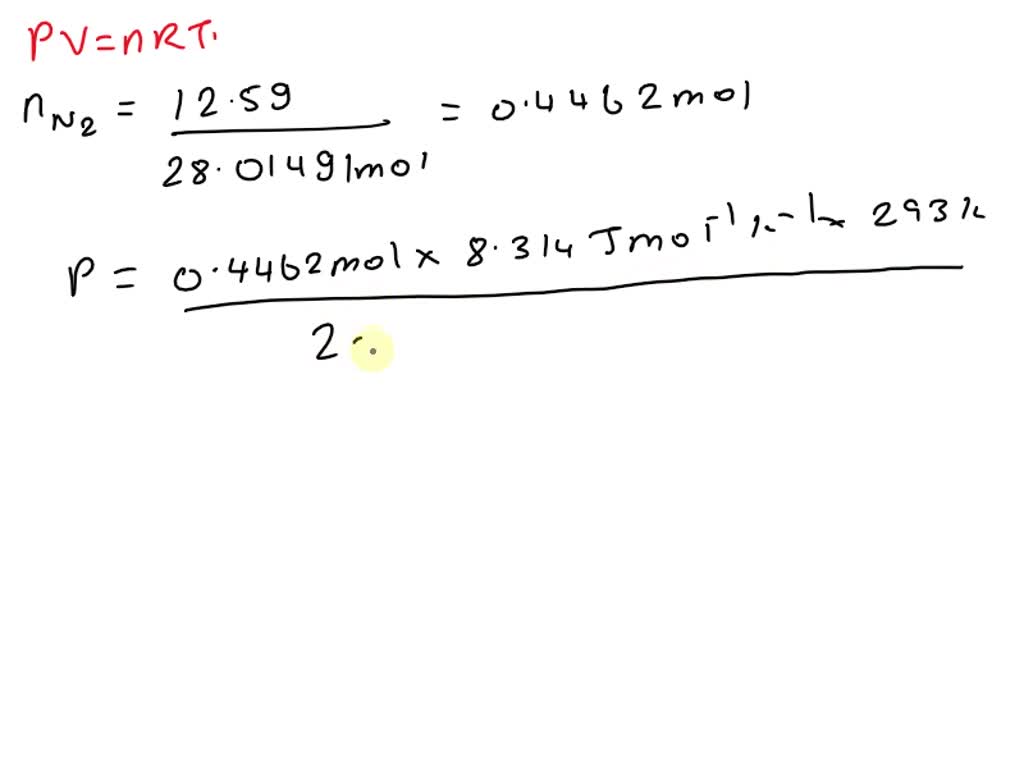 PV=nRT.
nN2 = 12.5g / 28.014g/mol = 0.4462mol
P = 0.4462mol x 8.314 Jmol-1k-1x 293k
2.